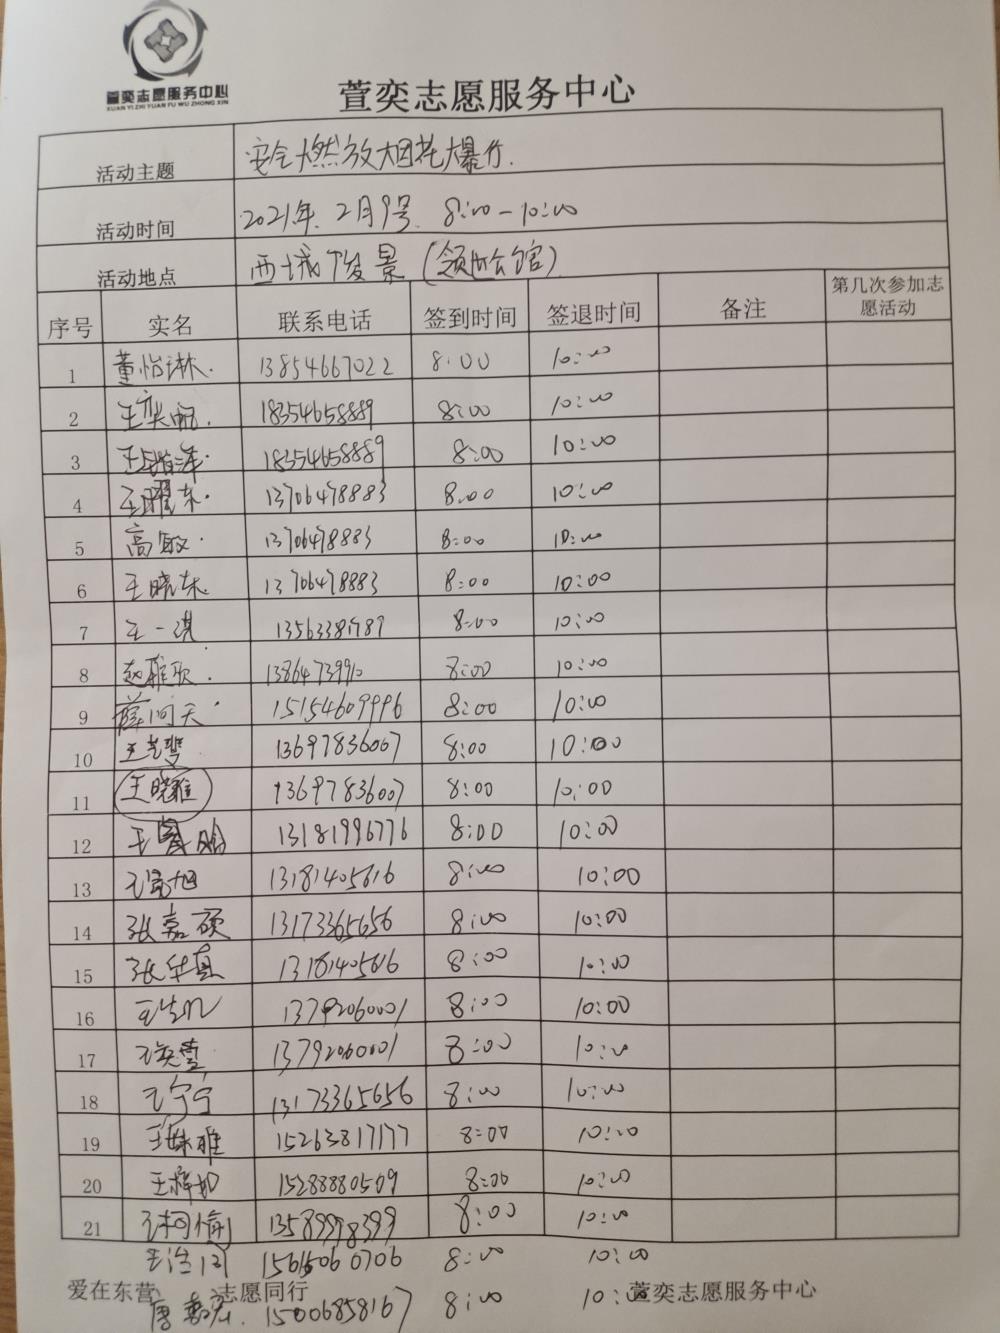 萱奕志愿服务中心
XUAN YI ZHI YUAN FU WU ZHONG XIN
萱奕志愿服务中心
活动主题 安全燃放烟花爆竹.
活动时间 2021年.2月9号. 8:00-10:00
活动地点 西城俊景(领世会馆)
序号 实名 联系电话 签到时间 签退时间 备注 第几次参加志愿活动
1 董怡琳. 13854667022 8:00 10:00
2 王奕帆. 18354658889 8:00 10:00
3 18354658889 8:00 10:00
4 王曜东. 13706478883 8:00 10:00
5 高敏. 13706478883 8:00 10:00
6 王晓东. 13706478883 8:00 10:00
7 王一淇 13563381787 8:00 10:00
8 赵雅歌. 13864739910 8:00 10:00
9 薛问天. 15154609996 8:00 10:00
10 13697836007 8:00 10:00
11 王晓雅 13697836007 8:00 10:00
12 13181996776 8:00 10:00
13 13181405616 8:00 10:00
14 张嘉硕 13173365656 8:00 10:00
15 13181405616 8:00 10:00
16 13792060001 8:00 10:00
17 13792060001 8:00 10:00
18 王宁宁 13173365656 8:00 10:00
19 王姝雅 15263817177 8:00 10:00
20 王梓如 15288880509 8:00 10:00
21 王柯愉 13589998399 8:00 10:00
15615060706 8:00 10:00
爱在东营 志愿同行 萱奕志愿服务中心
15006858167 8:00 10:00